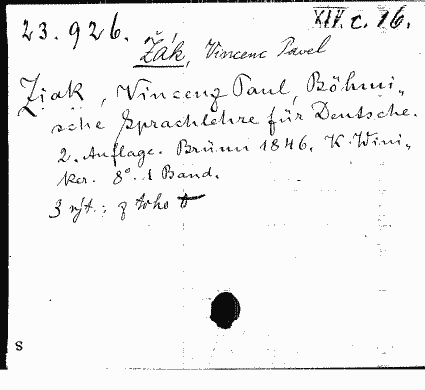 23.926.
XIV. c. 16.
Žák, Vincenc Pavel
Žiak, Vincenz Paul, Böhmi-
sche Sprachlehre für Deutsche.
2. Auflage. Brünn 1846. K. Wini-
ker. 8°. 1 Band.
3 výt.; z toho
S